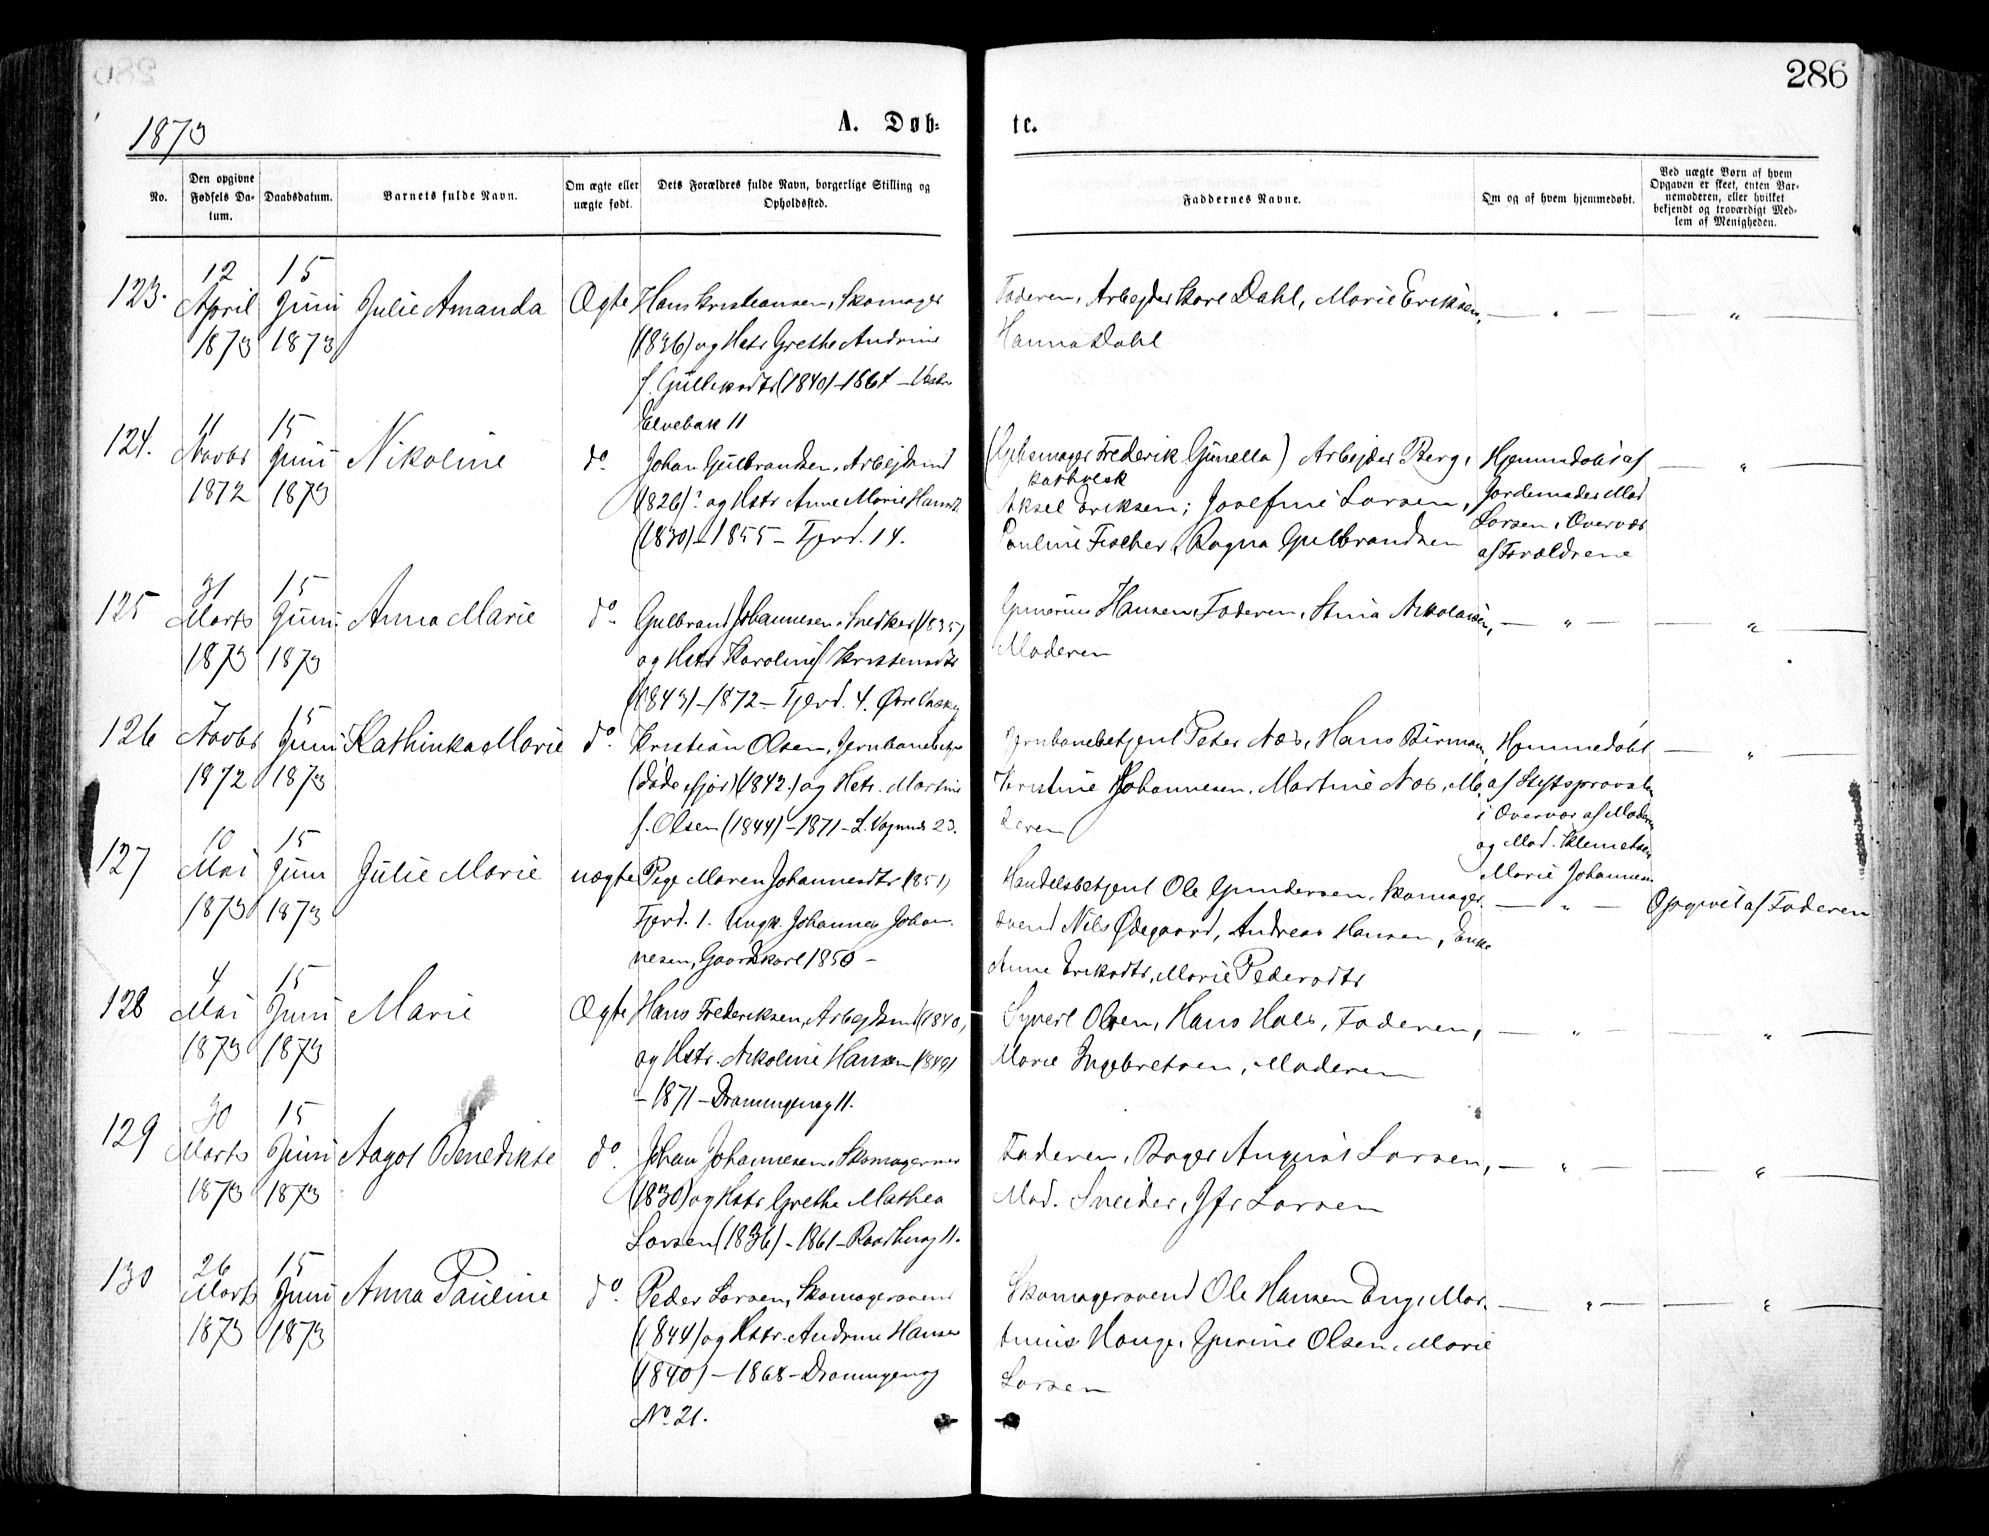 286
1873
A. Døb-
te.
No.
Den opgivne Fødsels Da-tum.
Daabsdatum.
Barnets fulde Navn.
Om ægte eller uægte født.
Dets Forældres fulde Navn, borgerlige Stilling og Opholdssted.
Faddernes Navne.
Om og af hvem hjemmedøbt.
Ved uægte Børn af hvem Opgaven er skeet, enten Bar-nemoderen, eller hvilket bekjendt og troværdigt Med-lem af Menigheden.
123.
12 April 1873
15 Juni 1873
Julie Amanda
Ægte
Hans Kristiansen, Skomager
(1836) og Hstr Grethe Andrine
f. Gulliksdtr (1840) - 1864 - Vestre
Elvebak 11
Faderen, Arbejder Karl Dahl, Marie Eriksen,
Hanna Dahl
— " —
— " —
124.
11 Novbr 1872
15 Juni 1873
Nikoline
do.
Johan Gulbrandsen, Arbejdsmd
(1826) og Hstr Anne Marie Hansdt
(1830) - 1855 - Fjerd. 14.
Frederik Gunella) Arbejder Berg,
katholsk
Aksel Eriksen, Josefine Larsen,
Pauline Fischer, Ragna Gulbrandsen
Hjemmedøbt af
Jordemoder Mad
Larsen, i Overvær
af Forældrene
— " —
125
31 Marts 1873
15 Juni 1873
Anna Marie
do.
Gulbrand Johannesen, Snedker (1835)
og Hstr Karoline f. Kristensdtr
(1843) - 1872 - Fjerd. 4. Øvre
Gunerius Hansen, Faderen, Stina Nikolaisen,
Moderen
— " —
— " —
126
7 Novbr 1872
15 Juni 1873
Kathinka Marie
do.
Kristian Olsen, Jernbanebetj
(1842) og Hstr. Martine
f. Olsen (1844) - 1871 - L. Vognmdr 23.
Jernbanebetjent Peter Næs, Hans Birman,
Kristine Johannesen, Martine Næs, Mo-
deren
Hjemmedøbt
af Stiftsprovsten
i Overvær af Moderen
og Mad. Klemetsen
Marie Johannesen
— " —
127
10 Mai 1873
15 Juni 1873
Julie Marie
uægte
Pige Maren Johannesdtr (1851)
Fjerd. 1. Ungk. Johannes Johan-
nesen, Gaardskarl 1850 -
Handelsbetjent Ole Gundersen, Skomager-
svend Nils Ødegaard, Andreas Hansen, Enke
Anne Eriksdtr, Marie Pedersdtr
— " —
Opgivet af Faderen
128
4 Mai 1873
15 Juni 1873
Marie
Ægte
Hans Frederiksen, Arbejdsmd (1840)
og Hstr. Nikoline Hansen (1849)
- 1871 - Drammensveg 11.
Syvert Olsen, Hans Hals, Faderen,
Marie Ingebretsen, Moderen
— " —
— " —
129
30 Marts 1873
15 Juni 1873
Aagot Benedikte
do.
Johan Johannesen, Skomagermr
(1830) og Hstr Grethe Mathea
Larsen (1836) - 1861 - Raadhusg 11.
Faderen, Bager August Larsen,
Mad. Sneider, Jfr Larsen
— " —
— " —
130
26 Marts 1873
15 Juni 1873
Anna Pauline
do.
Peder Larsen, Skomagersvend
(1844) og Hstr. Andrine Hansen
(1840) - 1868 - Drammensvej
No. 21.
Skomagersvend Ole Hansen Eng, Mar-
tinius Hauge, Gurine Olsen, Marie
Larsen
— " —
— " —